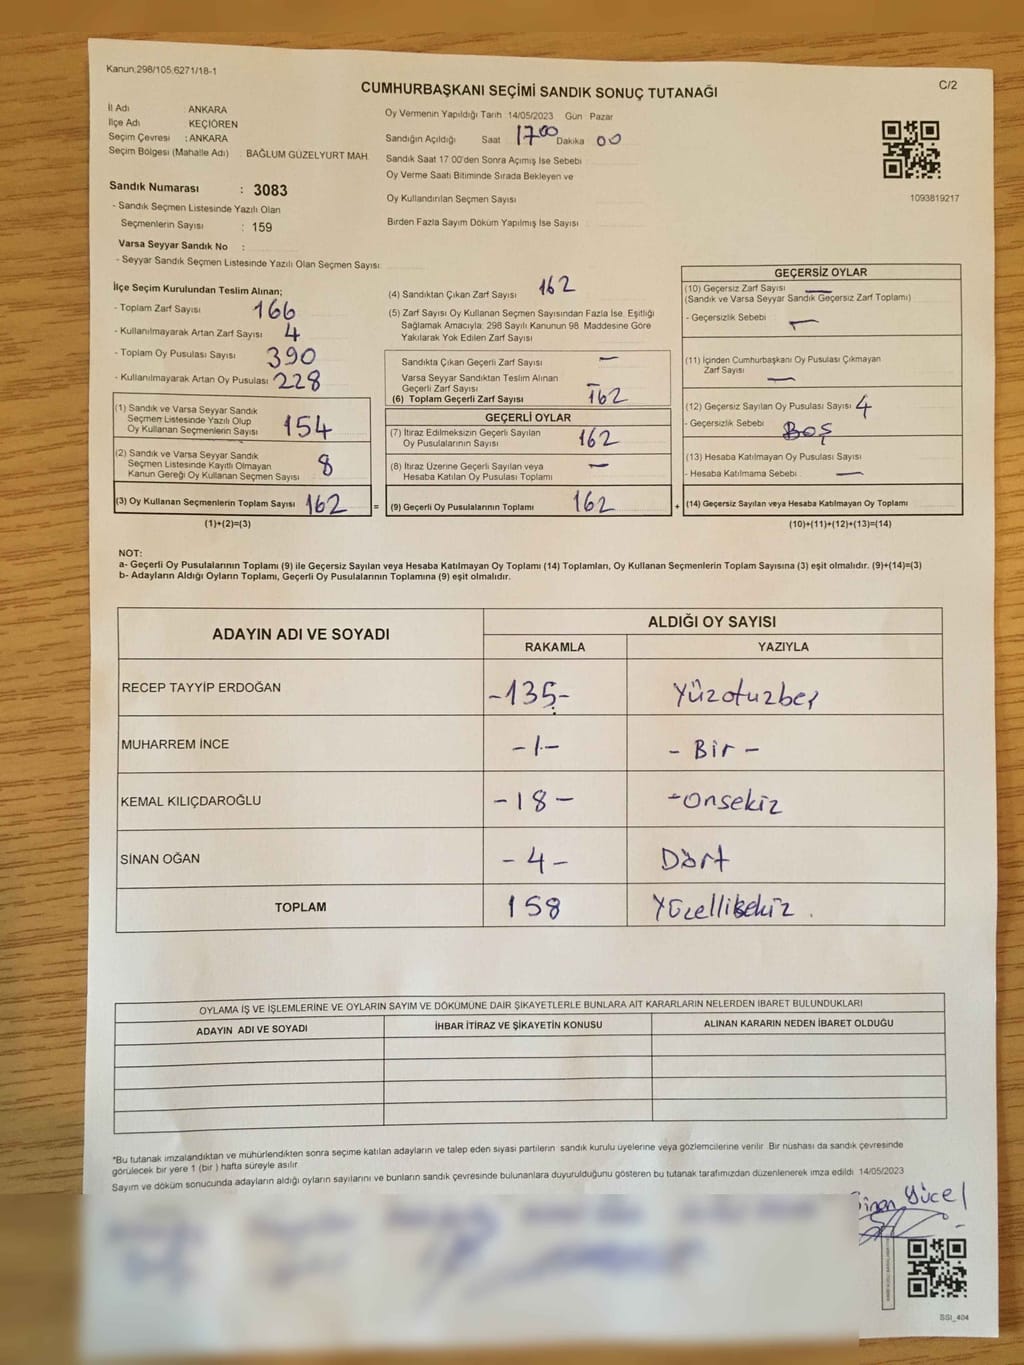 Kanun.298/105.6271/18-1
CUMHURBAŞKANI SEÇİMİ SANDIK SONUÇ TUTANAĞI
C/2
İl Adı : ANKARA
İlçe Adı : KEÇİÖREN
Seçim Çevresi : ANKARA
Seçim Bölgesi (Mahalle Adı) : BAĞLUM GÜZELYURT MAH.
Sandık Numarası : 3083
- Sandık Seçmen Listesinde Yazılı Olan
Seçmenlerin Sayısı : 159
Varsa Seyyar Sandık No :
- Seyyar Sandık Seçmen Listesinde Yazılı Olan Seçmen Sayısı:
Oy Vermenin Yapıldığı Tarih 14/05/2023 Gün Pazar
Sandığın Açıldığı Saat 1700 Dakika 00
Sandık Saat 17:00'den Sonra Açımış İse Sebebi
Oy Verme Saati Bitiminde Sırada Bekleyen ve
Oy Kullandırılan Seçmen Sayısı
Birden Fazla Sayım Döküm Yapılmış İse Sayısı
1093819217
İlçe Seçim Kurulundan Teslim Alınan;
- Toplam Zarf Sayısı 166
- Kullanılmayarak Artan Zarf Sayısı 4
- Toplam Oy Pusulası Sayısı 390
- Kullanılmayarak Artan Oy Pusulası 228
(1) Sandık ve Varsa Seyyar Sandık
Seçmen Listesinde Yazılı Olup
Oy Kullanan Seçmenlerin Sayısı 154
(2) Sandık ve Varsa Seyyar Sandık
Seçmen Listesinde Kayıtlı Olmayan
Kanun Gereği Oy Kullanan Seçmen Sayısı 8
(3) Oy Kullanan Seçmenlerin Toplam Sayısı 162 =
(1)+(2)=(3)
(4) Sandıktan Çıkan Zarf Sayısı 162
(5) Zarf Sayısı Oy Kullanan Seçmen Sayısından Fazla İse, Eşitliği
Sağlamak Amacıyla; 298 Sayılı Kanunun 98. Maddesine Göre
Yakılarak Yok Edilen Zarf Sayısı
Sandıkta Çıkan Geçerli Zarf Sayısı —
Varsa Seyyar Sandıktan Teslim Alınan
Geçerli Zarf Sayısı —
(6) Toplam Geçerli Zarf Sayısı 162
GEÇERLİ OYLAR
(7) İtiraz Edilmeksizin Geçerli Sayılan
Oy Pusulalarının Sayısı 162
(8) İtiraz Üzerine Geçerli Sayılan veya
Hesaba Katılan Oy Pusulası Toplamı —
(9) Geçerli Oy Pusulalarının Toplamı 162 +
GEÇERSİZ OYLAR
(10) Geçersiz Zarf Sayısı —
(Sandık ve Varsa Seyyar Sandık Geçersiz Zarf Toplamı)
- Geçersizlik Sebebi —
(11) İçinden Cumhurbaşkanı Oy Pusulası Çıkmayan
Zarf Sayısı —
(12) Geçersiz Sayılan Oy Pusulası Sayısı 4
- Geçersizlik Sebebi BOŞ
(13) Hesaba Katılmayan Oy Pusulası Sayısı
- Hesaba Katılmama Sebebi —
(14) Geçersiz Sayılan veya Hesaba Katılmayan Oy Toplamı
(10)+(11)+(12)+(13)=(14)
NOT:
a- Geçerli Oy Pusulalarının Toplamı (9) ile Geçersiz Sayılan veya Hesaba Katılmayan Oy Toplamı (14) Toplamları, Oy Kullanan Seçmenlerin Toplam Sayısına (3) eşit olmalıdır. (9)+(14)=(3)
b- Adayların Aldığı Oyların Toplamı, Geçerli Oy Pusulalarının Toplamına (9) eşit olmalıdır.
ADAYIN ADI VE SOYADI
ALDIĞI OY SAYISI
RAKAMLA YAZIYLA
RECEP TAYYİP ERDOĞAN -135- Yüzotuzbeş
MUHARREM İNCE -1- - Bir -
KEMAL KILIÇDAROĞLU -18- -Onsekiz
SİNAN OĞAN -4- Dört
TOPLAM 158 Yüzellisekiz.
OYLAMA İŞ VE İŞLEMLERİNE VE OYLARIN SAYIM VE DÖKÜMÜNE DAİR ŞİKAYETLERLE BUNLARA AİT KARARLARIN NELERDEN İBARET BULUNDUKLARI
ADAYIN ADI VE SOYADI İHBAR İTİRAZ VE ŞİKAYETİN KONUSU ALINAN KARARIN NEDEN İBARET OLDUĞU
*Bu tutanak imzalandıktan ve mühürlendikten sonra seçime katılan adayların ve talep eden siyasi partilerin sandık kurulu üyelerine veya gözlemcilerine verilir. Bir nüshası da sandık çevresinde
görülecek bir yere 1 (bir ) hafta süreyle asılır.
Sayım ve döküm sonucunda adayların aldığı oyların sayılarını ve bunların sandık çevresinde bulunanlara duyurulduğunu gösteren bu tutanak tarafımızdan düzenlenerek imza edildi. 14/05/2023
Yücel
SSI_404